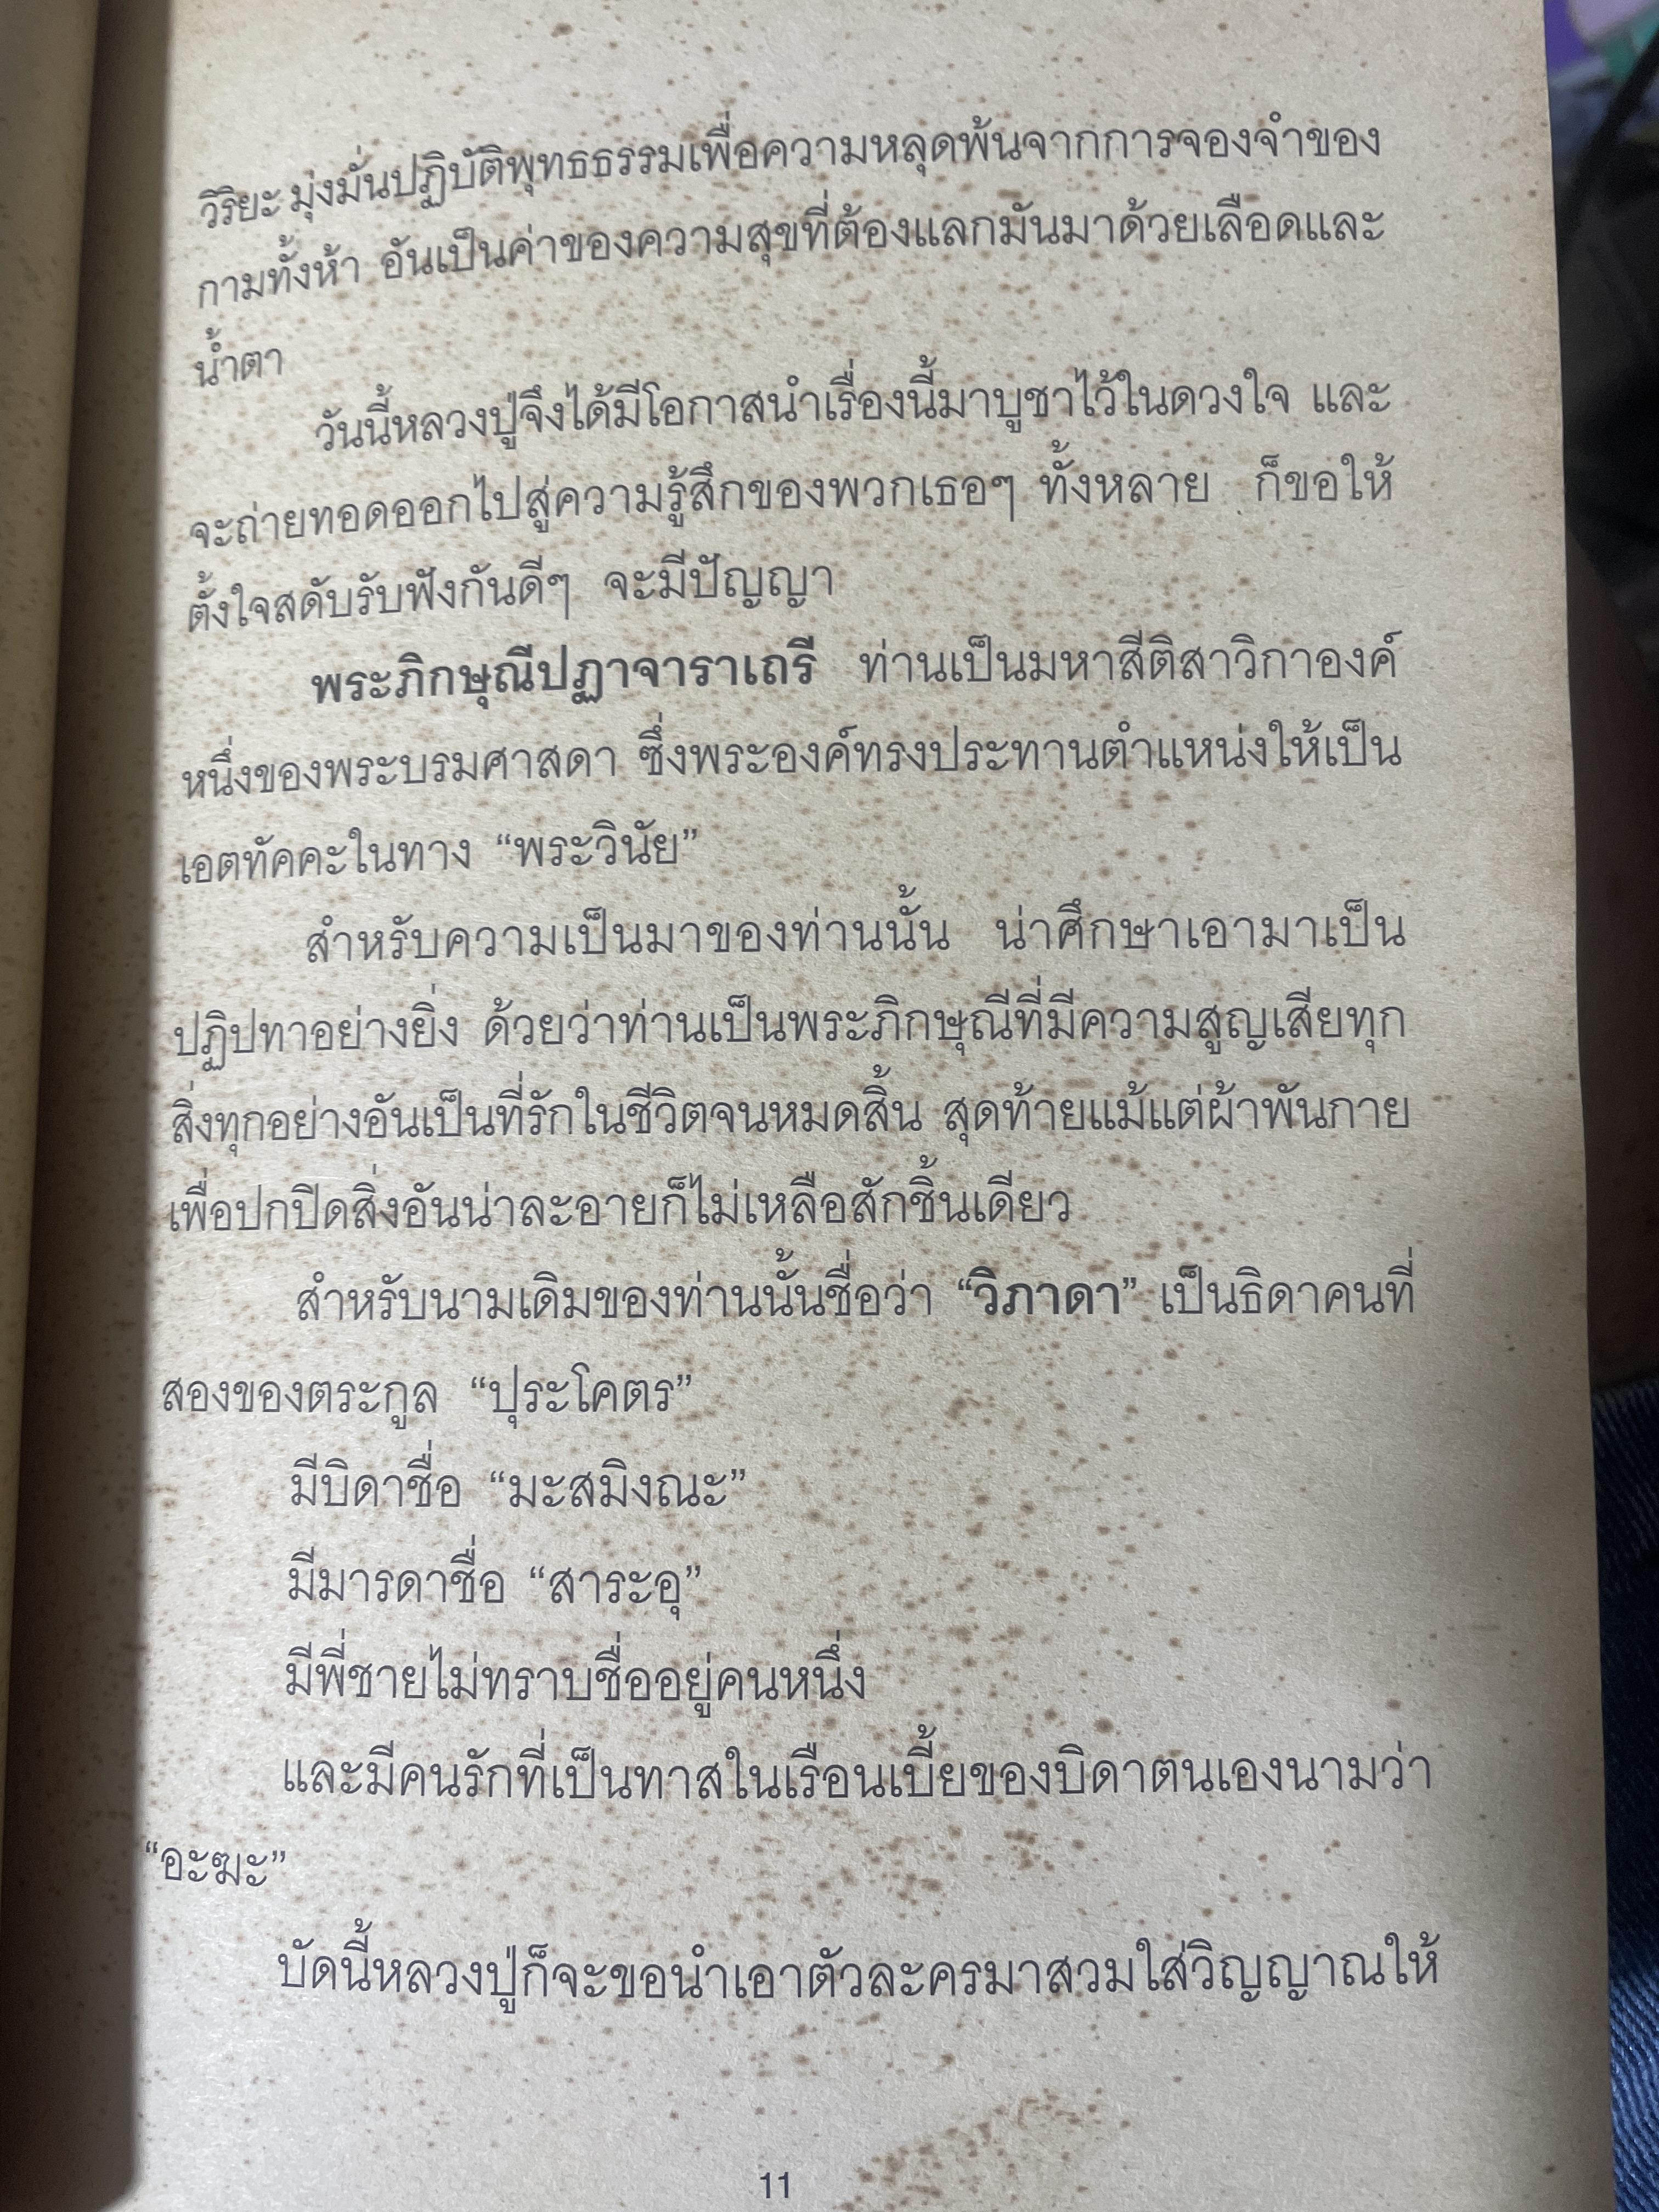 วิริยะ มุ่งมั่นปฏิบัติพุทธธรรมเพื่อความหลุดพ้นจากการจองจำของ
กามทั้งห้า อันเป็นค่าของความสุขที่ต้องแลกมันมาด้วยเลือดและ
น้ำตา
วันนี้หลวงปู่จึงได้มีโอกาสนำเรื่องนี้มาบูชาไว้ในดวงใจ และ
จะถ่ายทอดออกไปสู่ความรู้สึกของพวกเธอๆ ทั้งหลาย ก็ขอให้
ตั้งใจสดับรับฟังกันดีๆ จะมีปัญญา
พระภิกษุณีปฏาจาราเถรี ท่านเป็นมหาสีติสาวิกาองค์
หนึ่งของพระบรมศาสดา ซึ่งพระองค์ทรงประทานตำแหน่งให้เป็น
เอตทัคคะในทาง “พระวินัย”
สำหรับความเป็นมาของท่านนั้น น่าศึกษาเอามาเป็น
ปฏิปทาอย่างยิ่ง ด้วยว่าท่านเป็นพระภิกษุณีที่มีความสูญเสียทุก
สิ่งทุกอย่างอันเป็นที่รักในชีวิตจนหมดสิ้น สุดท้ายแม้แต่ผ้าพันกาย
เพื่อปกปิดสิ่งอันน่าละอายก็ไม่เหลือสักชิ้นเดียว
สำหรับนามเดิมของท่านนั้นชื่อว่า “วิภาดา” เป็นธิดาคนที่
สองของตระกูล “ปุระโคตร”
มีบิดาชื่อ “มะสมิงณะ”
มีมารดาชื่อ “สาระอุ”
มีพี่ชายไม่ทราบชื่ออยู่คนหนึ่ง
และมีคนรักที่เป็นทาสในเรือนเบี้ยของบิดาตนเองนามว่า
“อะฆะ”
บัดนี้หลวงปู่ก็จะขอนำเอาตัวละครมาสวมใส่วิญญาณให้
11